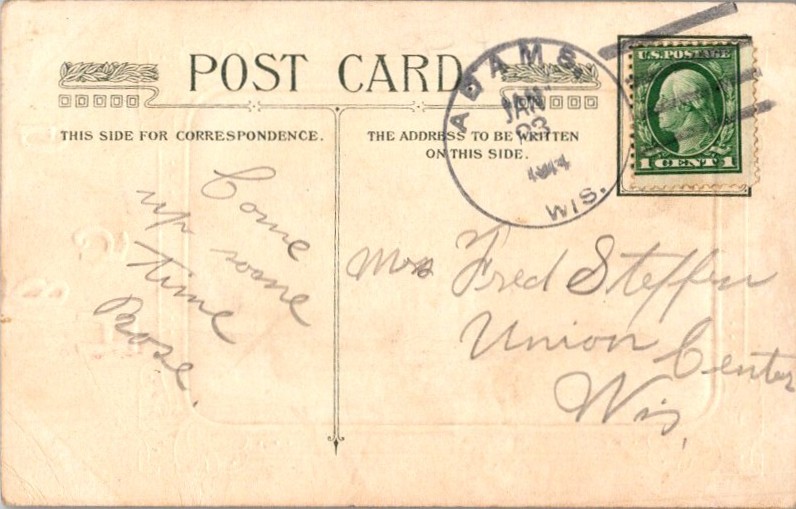 POST CARD
THIS SIDE FOR CORRESPONDENCE.
THE ADDRESS TO BE WRITTEN
ON THIS SIDE.
ADAMS,
JAN
23
1914
WIS.
U.S. POSTAGE
1 CENT 1
Come
up some
time
Rose.
Mrs Fred Steffen
Union Center
Wis,